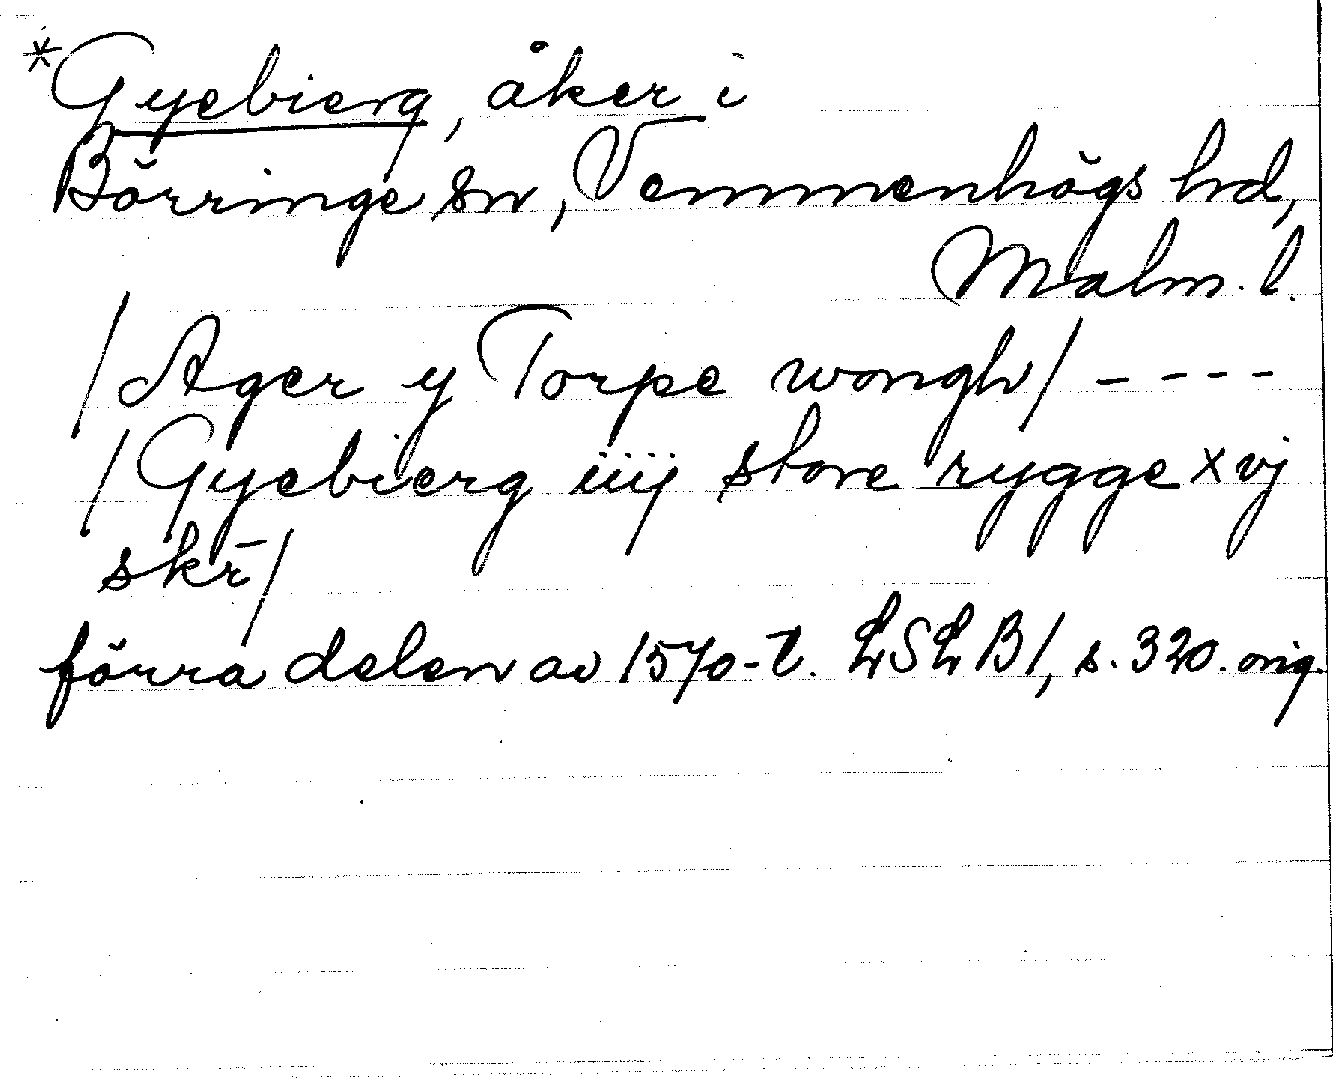 *Gyebierg, åker i
Börringe sn, Vemmenhögs hd,
Malm. l.
/Ager y Torpe wongh/ - - - -
/Gyebierg iiij store rygge xvj
skr̄/
förra delen av 1570-t. LSLB1, s. 320. orig.